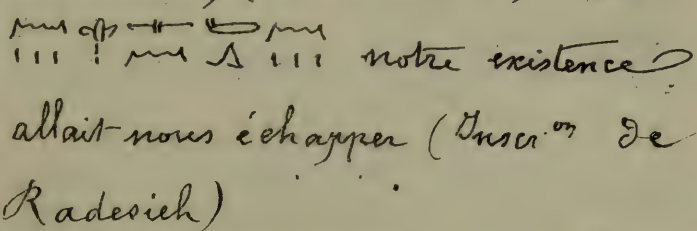 notre existence
allait-nous échapper (Inscr.on de
Radesieh)